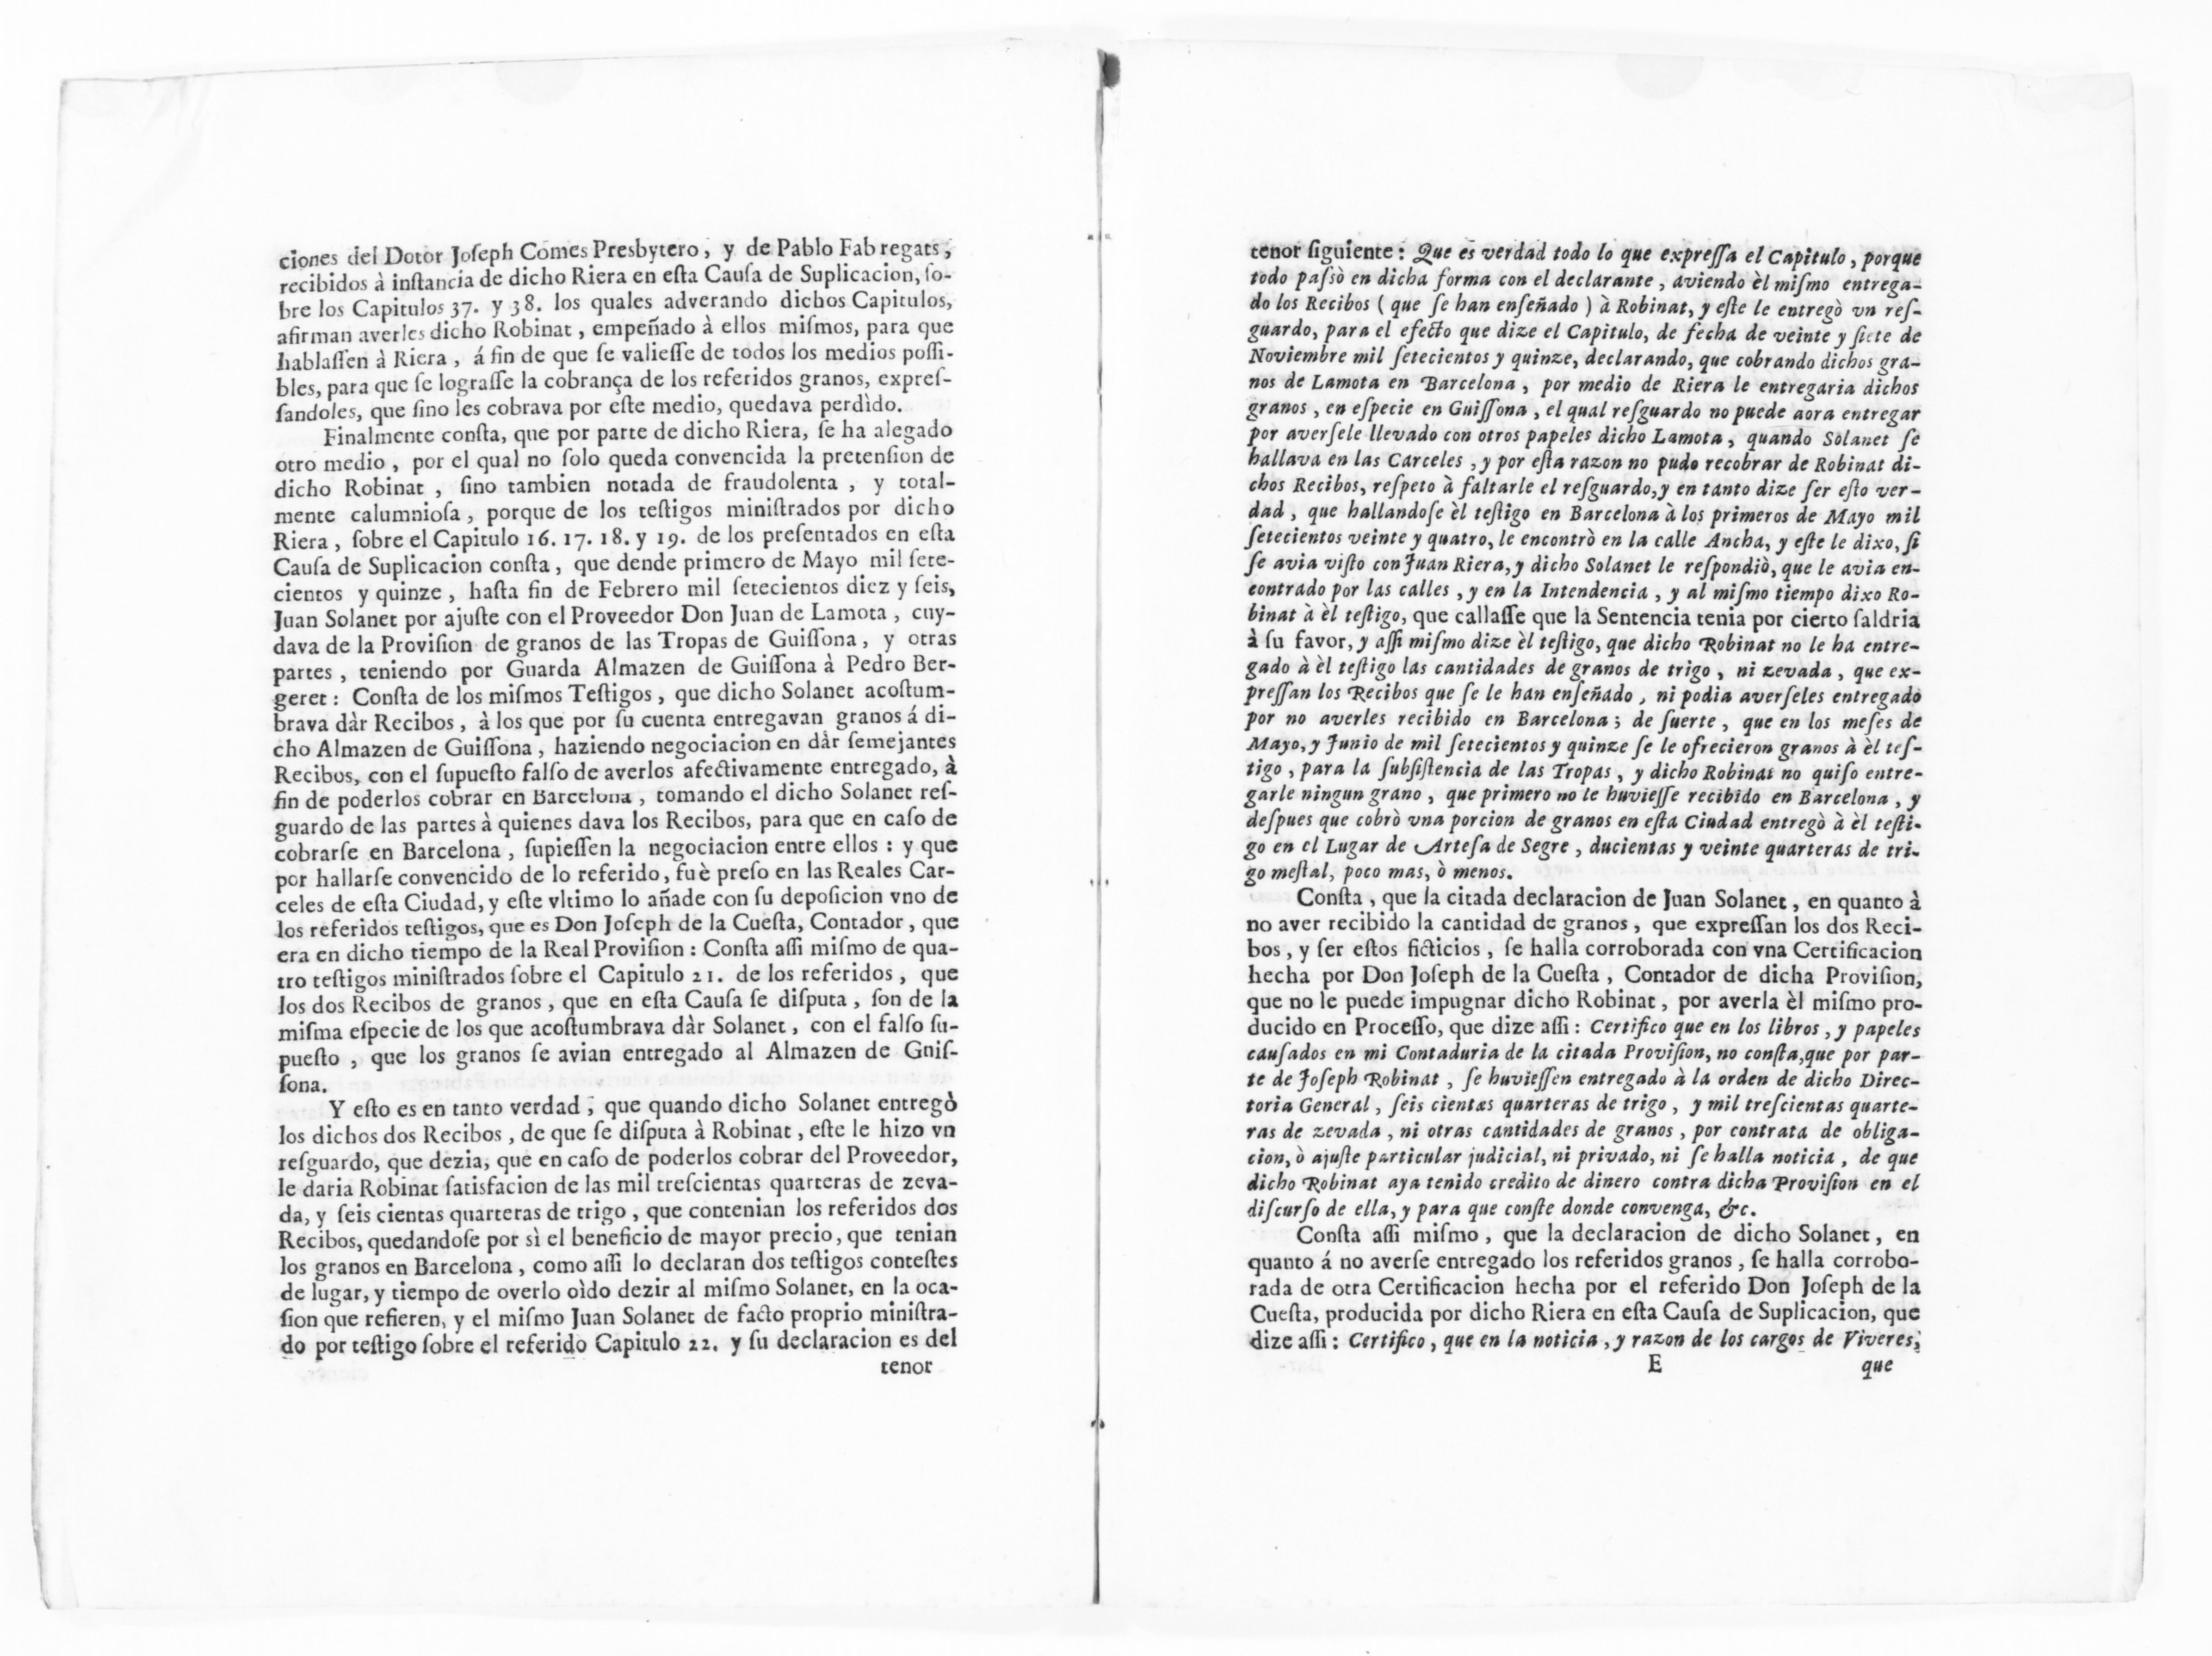 ciones del Dotor Joſeph Comes Presbytero, y de Pablo Fab regats,
recibidos à inſtancia de dicho Riera en eſta Cauſa de Suplicacion, ſo-
bre los Capitulos 37. y 38. los quales adverando dichos Capitulos,
afirman averles dicho Robinat, empeñado à ellos miſmos, para que
hablaſſen à Riera, á fin de que ſe valieſſe de todos los medios poſſi-
bles, para que ſe lograſſe la cobrança de los referidos granos, expreſ-
ſandoles, que ſino les cobrava por eſte medio, quedava perdìdo.
Finalmente conſta, que por parte de dicho Riera, ſe ha alegado
otro medio, por el qual no ſolo queda convencida la pretenſion de
dicho Robinat, ſino tambien notada de fraudolenta, y total-
mente calumnioſa, porque de los teſtigos miniſtrados por dicho
Riera, ſobre el Capitulo 16. 17. 18. y 19. de los preſentados en eſta
Cauſa de Suplicacion conſta, que dende primero de Mayo mil ſete-
cientos y quinze, haſta fin de Febrero mil ſetecientos diez y ſeis,
Juan Solanet por ajuſte con el Proveedor Don Juan de Lamota, cuy-
dava de la Proviſion de granos de las Tropas de Guiſſona, y otras
partes, teniendo por Guarda Almazen de Guiſſona à Pedro Ber-
geret: Conſta de los miſmos Teſtigos, que dicho Solanet acoſtum-
brava dàr Recibos, à los que por ſu cuenta entregavan granos á di-
cho Almazen de Guiſſona, haziendo negociacion en dàr ſemejantes
Recibos, con el ſupueſto falſo de averlos afectivamente entregado, à
fin de poderlos cobrar en Barcelona, tomando el dicho Solanet reſ-
guardo de las partes à quienes dava los Recibos, para que en caſo de
cobrarſe en Barcelona, ſupieſſen la negociacion entre ellos: y que
por hallarſe convencido de lo referido, fuè preſo en las Reales Car-
celes de eſta Ciudad, y eſte vltimo lo añade con ſu depoſicion vno de
los referidos teſtigos, que es Don Joſeph de la Cueſta, Contador, que
era en dicho tiempo de la Real Proviſion: Conſta aſſi miſmo de qua-
tro teſtigos miniſtrados ſobre el Capitulo 21. de los referidos, que
los dos Recibos de granos, que en eſta Cauſa ſe diſputa, ſon de la
miſma eſpecie de los que acoſtumbrava dàr Solanet, con el falſo ſu-
pueſto, que los granos ſe avian entregado al Almazen de Gniſ-
ſona.
Y eſto es en tanto verdad, que quando dicho Solanet entregò
los dichos dos Recibos, de que ſe diſputa à Robinat, eſte le hizo vn
reſguardo, que dezia, que en caſo de poderlos cobrar del Proveedor,
le daria Robinat ſatisfacion de las mil treſcientas quarteras de zeva-
da, y ſeis cientas quarteras de trigo, que contenian los referidos dos
Recibos, quedandoſe por sì el beneficio de mayor precio, que tenian
los granos en Barcelona, como aſſi lo declaran dos teſtigos conteſtes
de lugar, y tiempo de overlo oìdo dezir al miſmo Solanet, en la oca-
ſion que refieren, y el miſmo Juan Solanet de facto proprio miniſtra-
do por teſtigo ſobre el referido Capitulo 22. y ſu declaracion es del
tenor
tenor ſiguiente: Que es verdad todo lo que expreſſa el Capitulo, porque
todo paſsò en dicha forma con el declarante, aviendo èl miſmo entrega-
do los Recibos ( que ſe han enſeñado ) à Robinat, y eſte le entregò vn reſ-
guardo, para el efecto que dize el Capitulo, de fecha de veinte y ſiete de
Noviembre mil ſetecientos y quinze, declarando, que cobrando dichos gra-
nos de Lamota en Barcelona, por medio de Riera le entregaria dichos
granos, en eſpecie en Guiſſona, el qual reſguardo no puede aora entregar
por averſele llevado con otros papeles dicho Lamota, quando Solanet ſe
hallava en las Carceles, y por eſta razon no pudo recobrar de Robinat di-
chos Recibos, reſpeto à faltarle el reſguardo, y en tanto dize ſer eſto ver-
dad, que hallandoſe èl teſtigo en Barcelona à los primeros de Mayo mil
ſetecientos veinte y quatro, le encontrò en la calle Ancha, y eſte le dixo, ſi
ſe avia viſto con Juan Riera, y dicho Solanet le reſpondiò, que le avia en-
contrado por las calles, y en la Intendencia, y al miſmo tiempo dixo Ro-
binat à èl teſtigo, que callaſſe que la Sentencia tenia por cierto ſaldria
à ſu favor, y aſſi miſmo dize èl teſtigo, que dicho Robinat no le ha entre-
gado à èl teſtigo las cantidades de granos de trigo, ni zevada, que ex-
preſſan los Recibos que ſe le han enſeñado, ni podia averſeles entregado
por no averles recibido en Barcelona; de ſuerte, que en los meſes de
Mayo, y Junio de mil ſetecientos y quinze ſe le ofrecieron granos à èl teſ-
tigo, para la ſubſiſtencia de las Tropas, y dicho Robinat no quiſo entre-
garle ningun grano, que primero no le huvieſſe recibido en Barcelona, y
deſpues que cobrò vna porcion de granos en eſta Ciudad entregò à èl teſti-
go en el Lugar de Arteſa de Segre, ducientas y veinte quarteras de tri-
go meſtal, poco mas, ò menos.
Conſta, que la citada declaracion de Juan Solanet, en quanto à
no aver recibido la cantidad de granos, que expreſſan los dos Reci-
bos, y ſer eſtos ficticios, ſe halla corroborada con vna Certificacion
hecha por Don Joſeph de la Cueſta, Contador de dicha Proviſion,
que no le puede impugnar dicho Robinat, por averla èl miſmo pro-
ducido en Proceſſo, que dize aſſi: Certifico que en los libros, y papeles
cauſados en mi Contaduria de la citada Proviſion, no conſta, que por par-
te de Joſeph Robinat, ſe huvieſſen entregado à la orden de dicho Direc-
toria General, ſeis cientas quarteras de trigo, y mil treſcientas quarte-
ras de zevada, ni otras cantidades de granos, por contrata de obliga-
cion, ò ajuſte particular judicial, ni privado, ni ſe halla noticia, de que
dicho Robinat aya tenido credito de dinero contra dicha Proviſion en el
diſcurſo de ella, y para que conſte donde convenga, &c.
Conſta aſſi miſmo, que la declaracion de dicho Solanet, en
quanto á no averſe entregado los referidos granos, ſe halla corrobo-
rada de otra Certificacion hecha por el referido Don Joſeph de la
Cueſta, producida por dicho Riera en eſta Cauſa de Suplicacion, que
dize aſſi: Certifico, que en la noticia, y razon de los cargos de Viveres,
E que